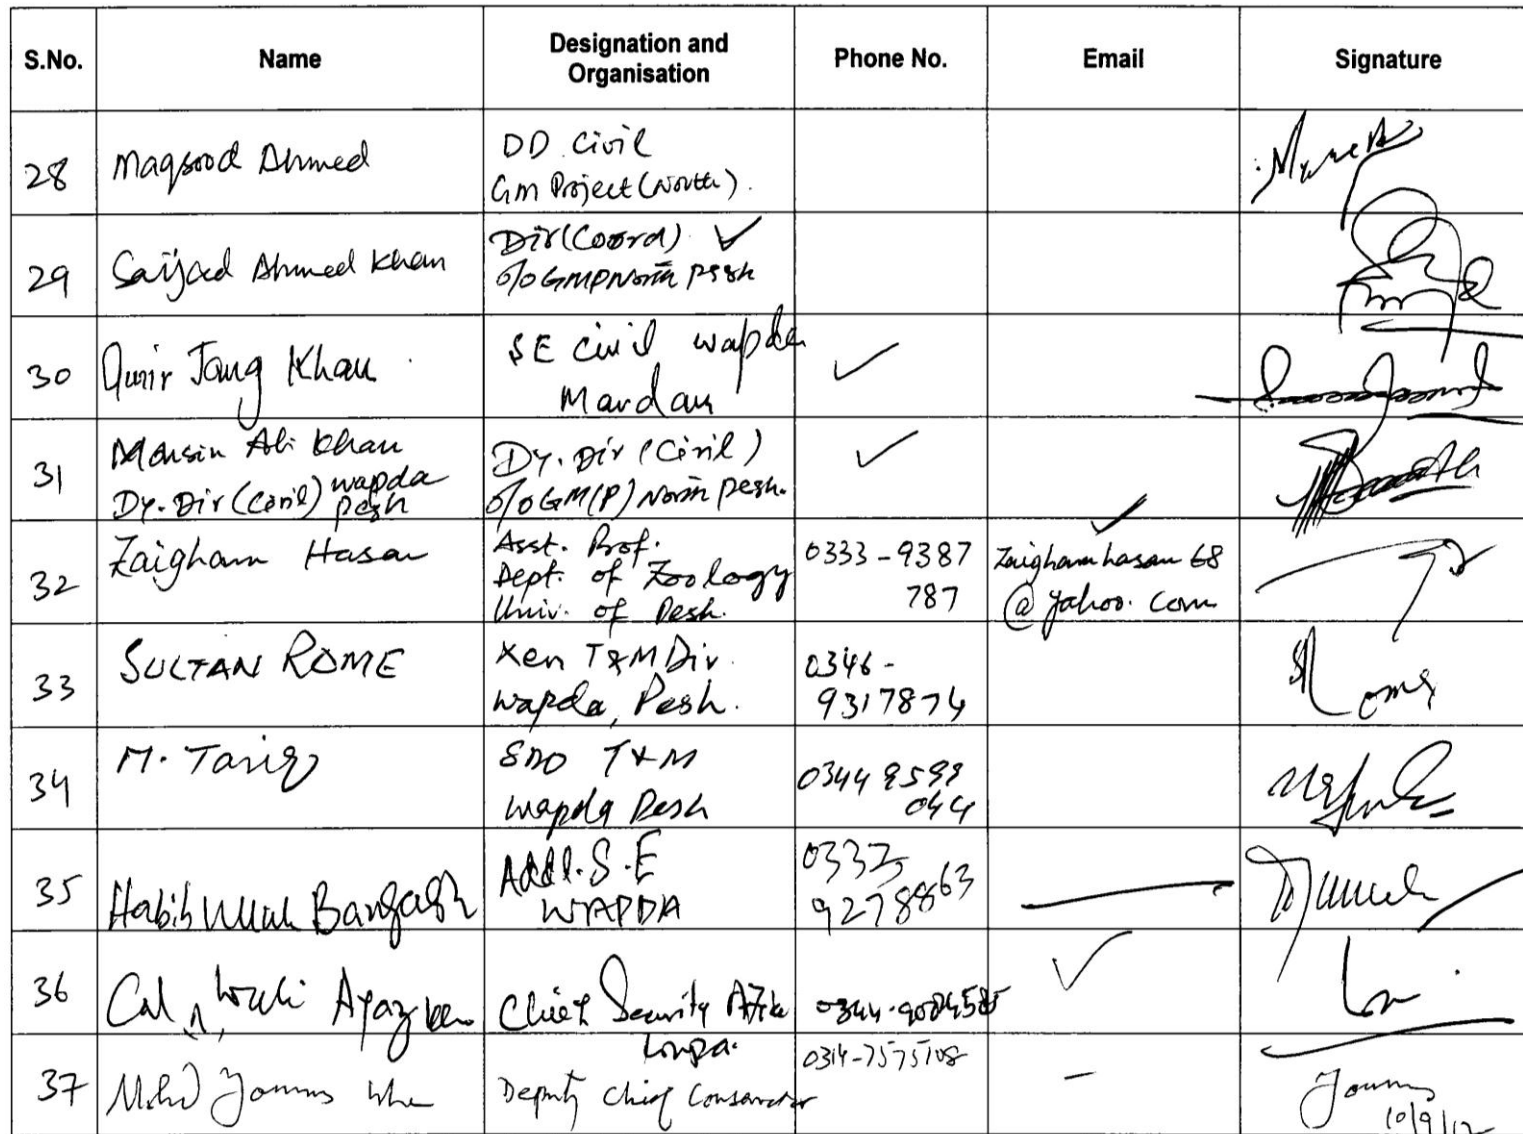 S.No.
Name
Designation and
Organisation
Phone No.
Email
Signature
28
Maqsood Ahmed
DD Civil
GM Project (North).
29
Sajjad Ahmed Khan
Dir (Coord) ✓
o/o GMP North Pesh
30
Jang Khan
SE Civil wapda
Mardan
✓
31
Mohsin Ali Khan
Dy. Dir (Civil) wapda
Pesh
Dy. Dir (Civil)
o/o GM(P) North Pesh.
✓
32
Zaigham Hasan
Asst. Prof.
Dept. of Zoology
Univ. of Pesh.
0333-9387
787
✓
Zaighamhasan68
@yahoo.com
33
SULTAN ROME
Xen T&M Div.
Wapda, Pesh.
0346-
9317874
34
M. Tariq
SDO T&M
Wapda Pesh
0344 9599
044
35
Habib Ullah Bangash
Addl. S.E
WAPDA
92788863
36
Ayaz
Chief Security
✓
37
Mohd Younus Khan
Deputy Chief Conservator
0314-7575108
-
Younus
10/9/12